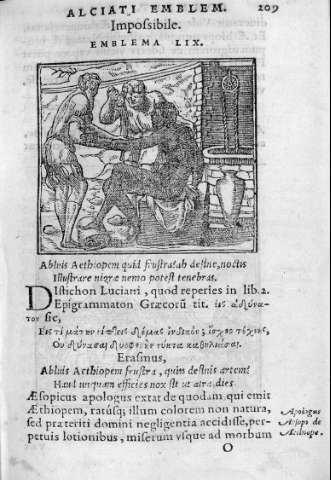 ALCIATI EMBLEM. 209
Impossibile.
EMBLEMA LIX.
Abluis Aethiopem quid frustra? ah desine, noctis
Illustrare nigrae nemo potest tenebras.
DIstichon Luciani, quod reperies in lib. 2.
Epigrammaton Græcorũ tit. εἰς ἀδύνα-
τον sic,
Εἰς τί μάτην νίπτεις δέμας ἰνδικόν; ἴσχεο τέχνης,
Οὐ δύνασαι δνοφερὴν νύκτα καθηλιάσαι.
Erasmus,
Abluis Aethiopem frustra, quin desinis artem?
Haud unquam efficies nox sit ut atra, dies.
Æsopicus apologus extat de quodam qui emit
Æthiopem, ratúsq; illum colorem non natura,
sed præteriti domini negligentia accidisse, per-
petuis lotionibus, miserum vsque ad morbum
Apologus
Æsopi de
Æthiope.
O